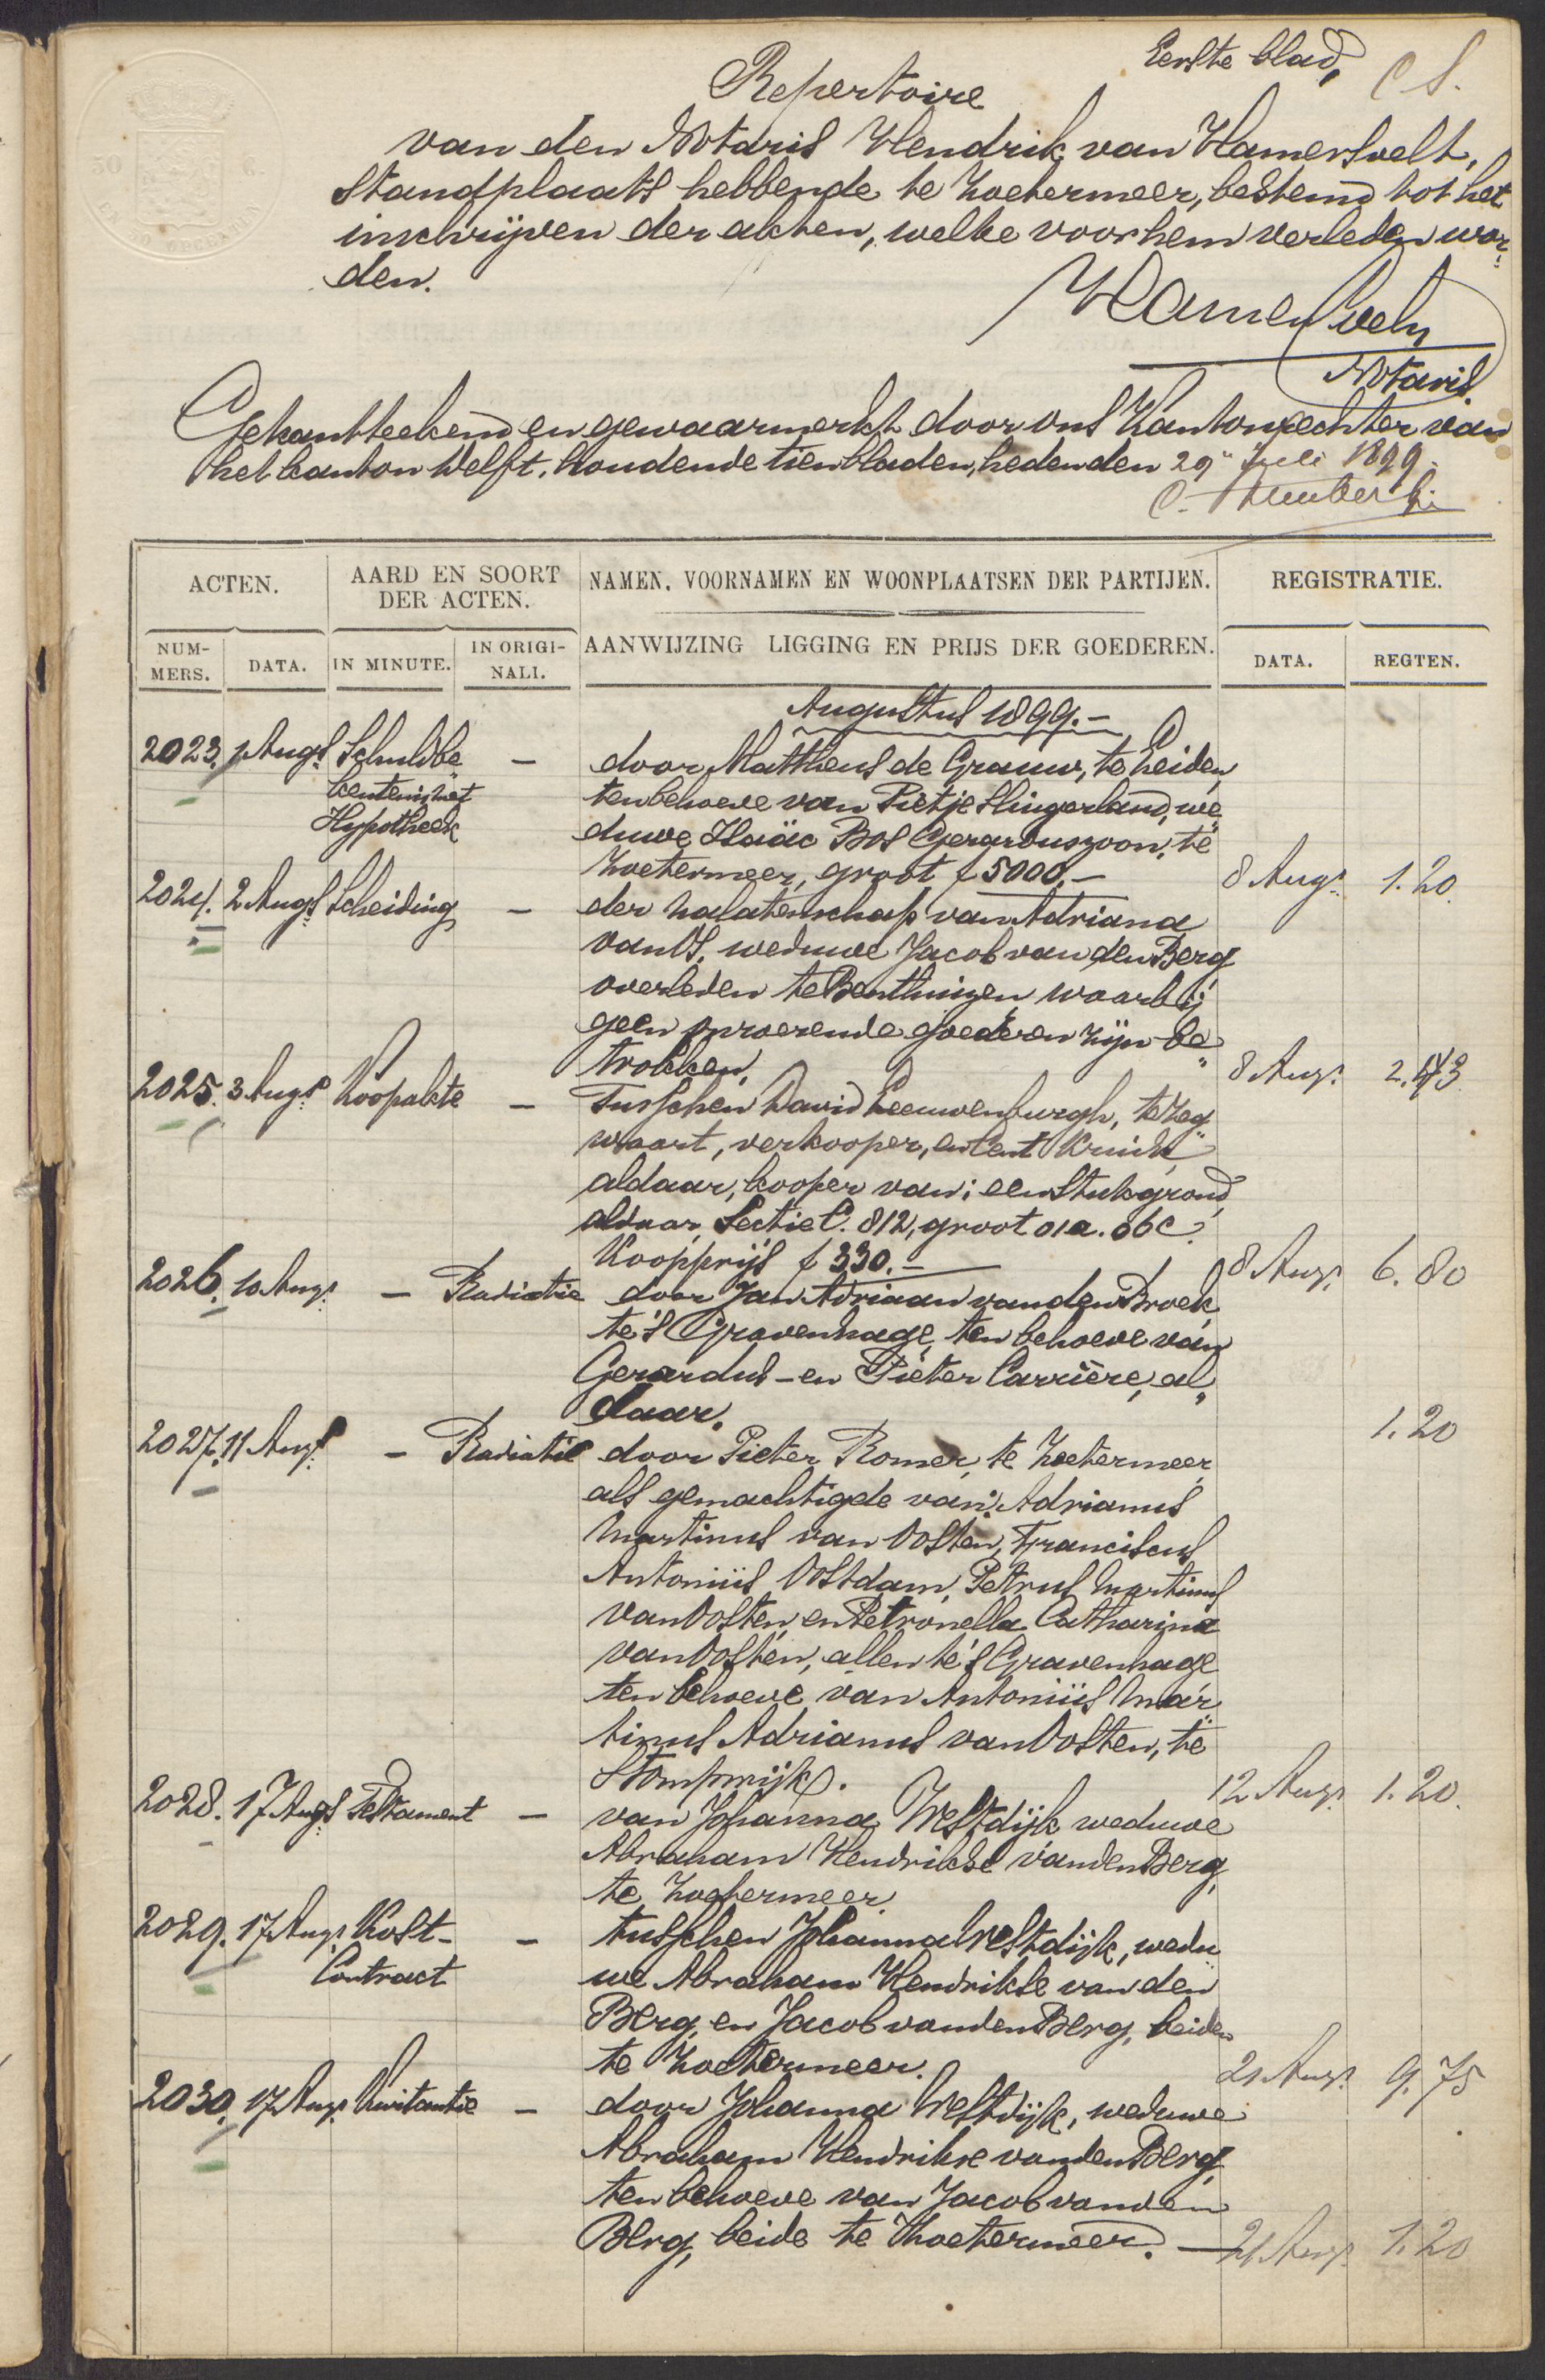 Eerste blad,
C S.
Repertoire
van den Notaris Hendrik van Hamersvelt,
standplaats hebbende te Zoetermeer, bestemd tot het
inschrijven der akten, welke voor hem verleden wor
den.
HvHamersvelt
Notaris
Gekantteekend en gewaarmerkt door ons Kantonrechter van
het kanton Delft, houdende tien bladen, heden den 29n Juli 1899.
ACTEN.
AARD EN SOORT
DER ACTEN.
NAMEN, VOORNAMEN EN WOONPLAATSEN DER PARTIJEN.
REGISTRATIE.
NUM-
MERS.
DATA.
IN MINUTE.
IN ORIGI-
NALI.
AANWIJZING LIGGING EN PRIJS DER GOEDEREN.
DATA.
REGTEN.
Augustus 1899.-
2023. 1 Augs Schuldbe - door Mattheus de Grauw, te Leiden,
kentenis met ten behoeve van Pietje Slingerland, we
Hypotheek duwe Isaäc Bos Gerarduszoon, te
Zoetermeer, groot f 5000.- 8 Augs 1.20.
2024. 2 Augs Scheiding - der nalatenschap van Adriana
van Os, weduwe Jacob van den Berg
overleden te Benthuizen, waarbij
geen onroerende goederen zijn be
trokken. 8 Augs 2.43
2025. 3 Augs Koopakte - Tusschen David Leeuwenburgh, te Zeg
waart, verkooper, en Cent Kruik
aldaar, kooper van: een stuk grond,
aldaar, Sectie C. 812, groot 01a. 06c.
Koopprijs f 330.- 8 Augs 6.80
2026. 10 Augs - Radiatie door Jan Adriaan van den Broek,
te 's Gravenhage, ten behoeve van
Gerardus- en Pieter Carrière, al
daar. 1.20
2027. 11 Augs - Radiatie door Pieter Romer, te Zoetermeer,
als gemachtigde van: Adrianus
Martinus van Oosten, Franciscus
Antonius Oostdam, Petrus Martinus
van Oosten, en Petronella Catharina
van Oosten, allen te 's Gravenhage
ten behoeve van Antonius Mar
tinus Adrianus van Oosten, te
Stompwijk. 12 Augs 1.20.
2028. 17 Augs Testament - van Johanna Westdijk weduwe
Abraham Hendrikse van den Berg,
te Zoetermeer.
2029. 17 Augs Kost- - tusschen Johanna Westdijk, wedu
Contract we Abraham Hendrikse van den
Berg, en Jacob van den Berg, beiden
te Zoetermeer. 21 Augs 9.75
2030. 17 Augs Kwitantie - door Johanna Westdijk, weduwe
Abraham Hendrikse van den Berg,
ten behoeve van Jacob van den
Berg, beide te Zoetermeer. - 21 Augs 1.20